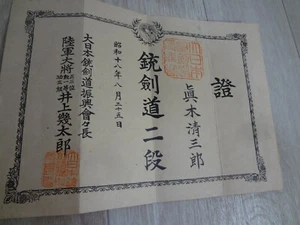 證
眞木清三郎
銃劍道二段
昭和十八年八月二十五日
大日本銃劍道振興會々長
陸軍大將
井上幾太郎